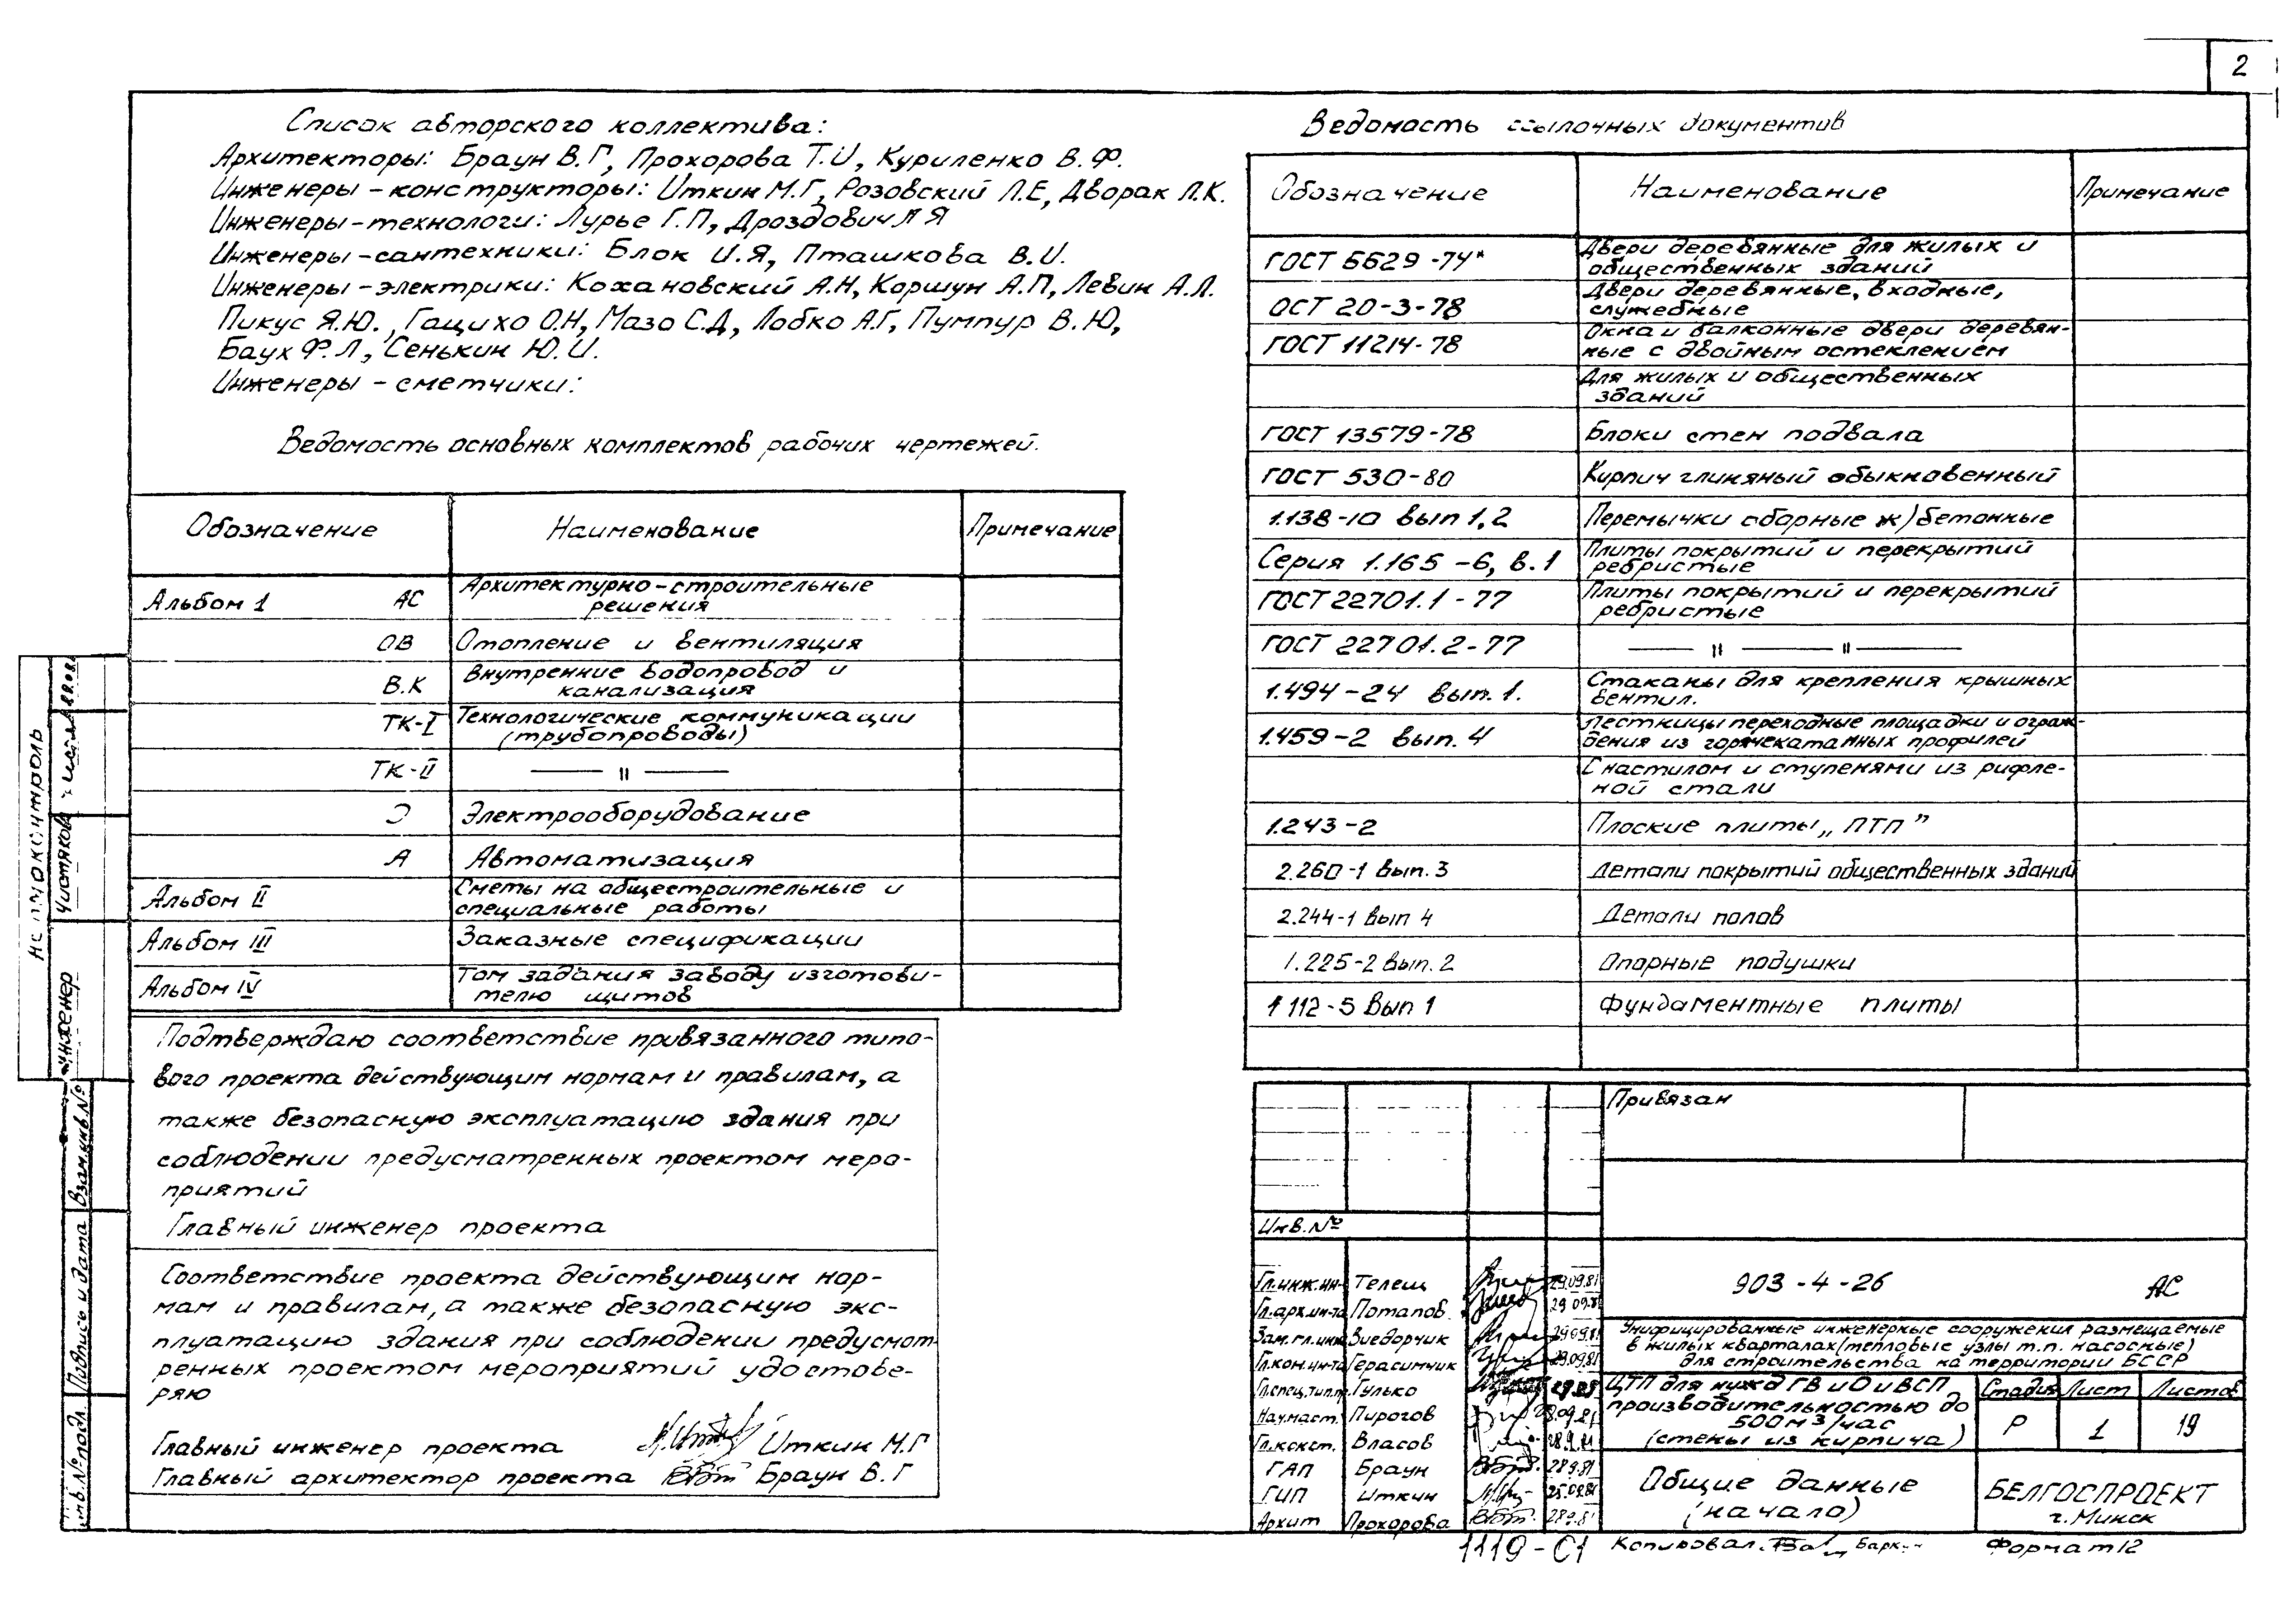 2
Список авторского коллектива:
Архитекторы: Браун В.Г, Прохорова Т.И, Куриленко В.Ф.
Инженеры-конструкторы: Иткин М.Г, Розовский Л.Е, Дворак Л.К.
Инженеры-технологи: Лурье Г.П, Дроздович Л Я
Инженеры-сантехники: Блок И.Я, Пташкова В.И.
Инженеры-электрики: Кохановский А.Н, Коршун А.П, Левин А.Л.
Пикус Я.Ю., Гащихо О.Н, Мазо С.Д, Лобко А.Г, Пумпур В.Ю,
Баух Ф.Л, Сенькин Ю.И.
Инженеры-сметчики:
Ведомость основных комплектов рабочих чертежей.
Обозначение Наименование Примечание
Альбом 1 АС Архитектурно-строительные
решения
ОВ Отопление и вентиляция
В.К Внутренние водопровод и
канализация
ТК-I Технологические коммуникации
(трубопроводы)
ТК-II — " —
Э Электрооборудование
А Автоматизация
Альбом II Сметы на общестроительные и
специальные работы
Альбом III Заказные спецификации
Альбом IV Том задания заводу изготови-
телю щитов
Подтверждаю соответствие привязанного типо-
вого проекта действующим нормам и правилам, а
также безопасную эксплуатацию здания при
соблюдении предусматренных проектом меро-
приятий
Главный инженер проекта
Соответствие проекта действующим нор-
мам и правилам, а также безопасную экс-
плуатацию здания при соблюдении предусмот-
ренных проектом мероприятий удостове-
ряю
Главный инженер проекта Иткин М.Г
Главный архитектор проекта Браун В.Г
Ведомость ссылочных документов
Обозначение Наименование Примечание
ГОСТ 6629-74* Двери деревянные для жилых и
общественных зданий
ОСТ 20-3-78 Двери деревянные, входные,
служебные
ГОСТ 11214-78 Окна и балконные двери деревян-
ные с двойным остеклением
Для жилых и общественных
зданий
ГОСТ 13579-78 Блоки стен подвала
ГОСТ 530-80 Кирпич глиняный обыкновенный
1.138-10 вып 1,2 Перемычки сборные ж/бетонные
Серия 1.165-6, в.1 Плиты покрытий и перекрытий
ребристые
ГОСТ 22701.1-77 Плиты покрытий и перекрытий
ребристые
ГОСТ 22701.2-77 — " — " —
1.494-24 вып.1. Стаканы для крепления крышных
вентил.
1.459-2 вып.4 Лестницы переходные площадки и ограж-
дения из горячекатанных профилей
С настилом и ступенями из рифле-
ной стали
1.243-2 Плоские плиты „ПТП"
2.260-1 вып.3 Детали покрытий общественных зданий
2.244-1 вып 4 Детали полов
1.225-2 вып.2 Опорные подушки
1 112-5 Вып 1 Фундаментные плиты
Привязан
Инв.№
Гл.инж.ин- Телеш 29.09.81
Гл.арх.ин-та Потапов 29 09.81
Зам.гл.инж 29.09.81
Гл.кон.ин-та Герасимчик 29.09.81
Гл.спец.тип.пр. Гулько
Нач.маст. Пирогов 28.09.81
Гл.конст. Власов 28.9.81
ГАП Браун 28.9.81
ГИП Иткин 25.09.81
Архит Прохорова 28.9.81
903-4-26 АС
Унифицированные инженерные сооружения размещаемые
в жилых кварталах (тепловые узлы т.п. насосные)
для строительства на территории БССР
ЦТП для нужд ГВ и О и ВСП
производительностью до
500м³/час
(стены из кирпича)
Стадия Лист Листов
Р 1 19
Общие данные
(начало)
БЕЛГОСПРОЕКТ
г. Минск
1119-01 Копировал. Формат 12
Чистякова
Инженер
Взам.инв.№
Подпись и дата
Инв.№ подл.